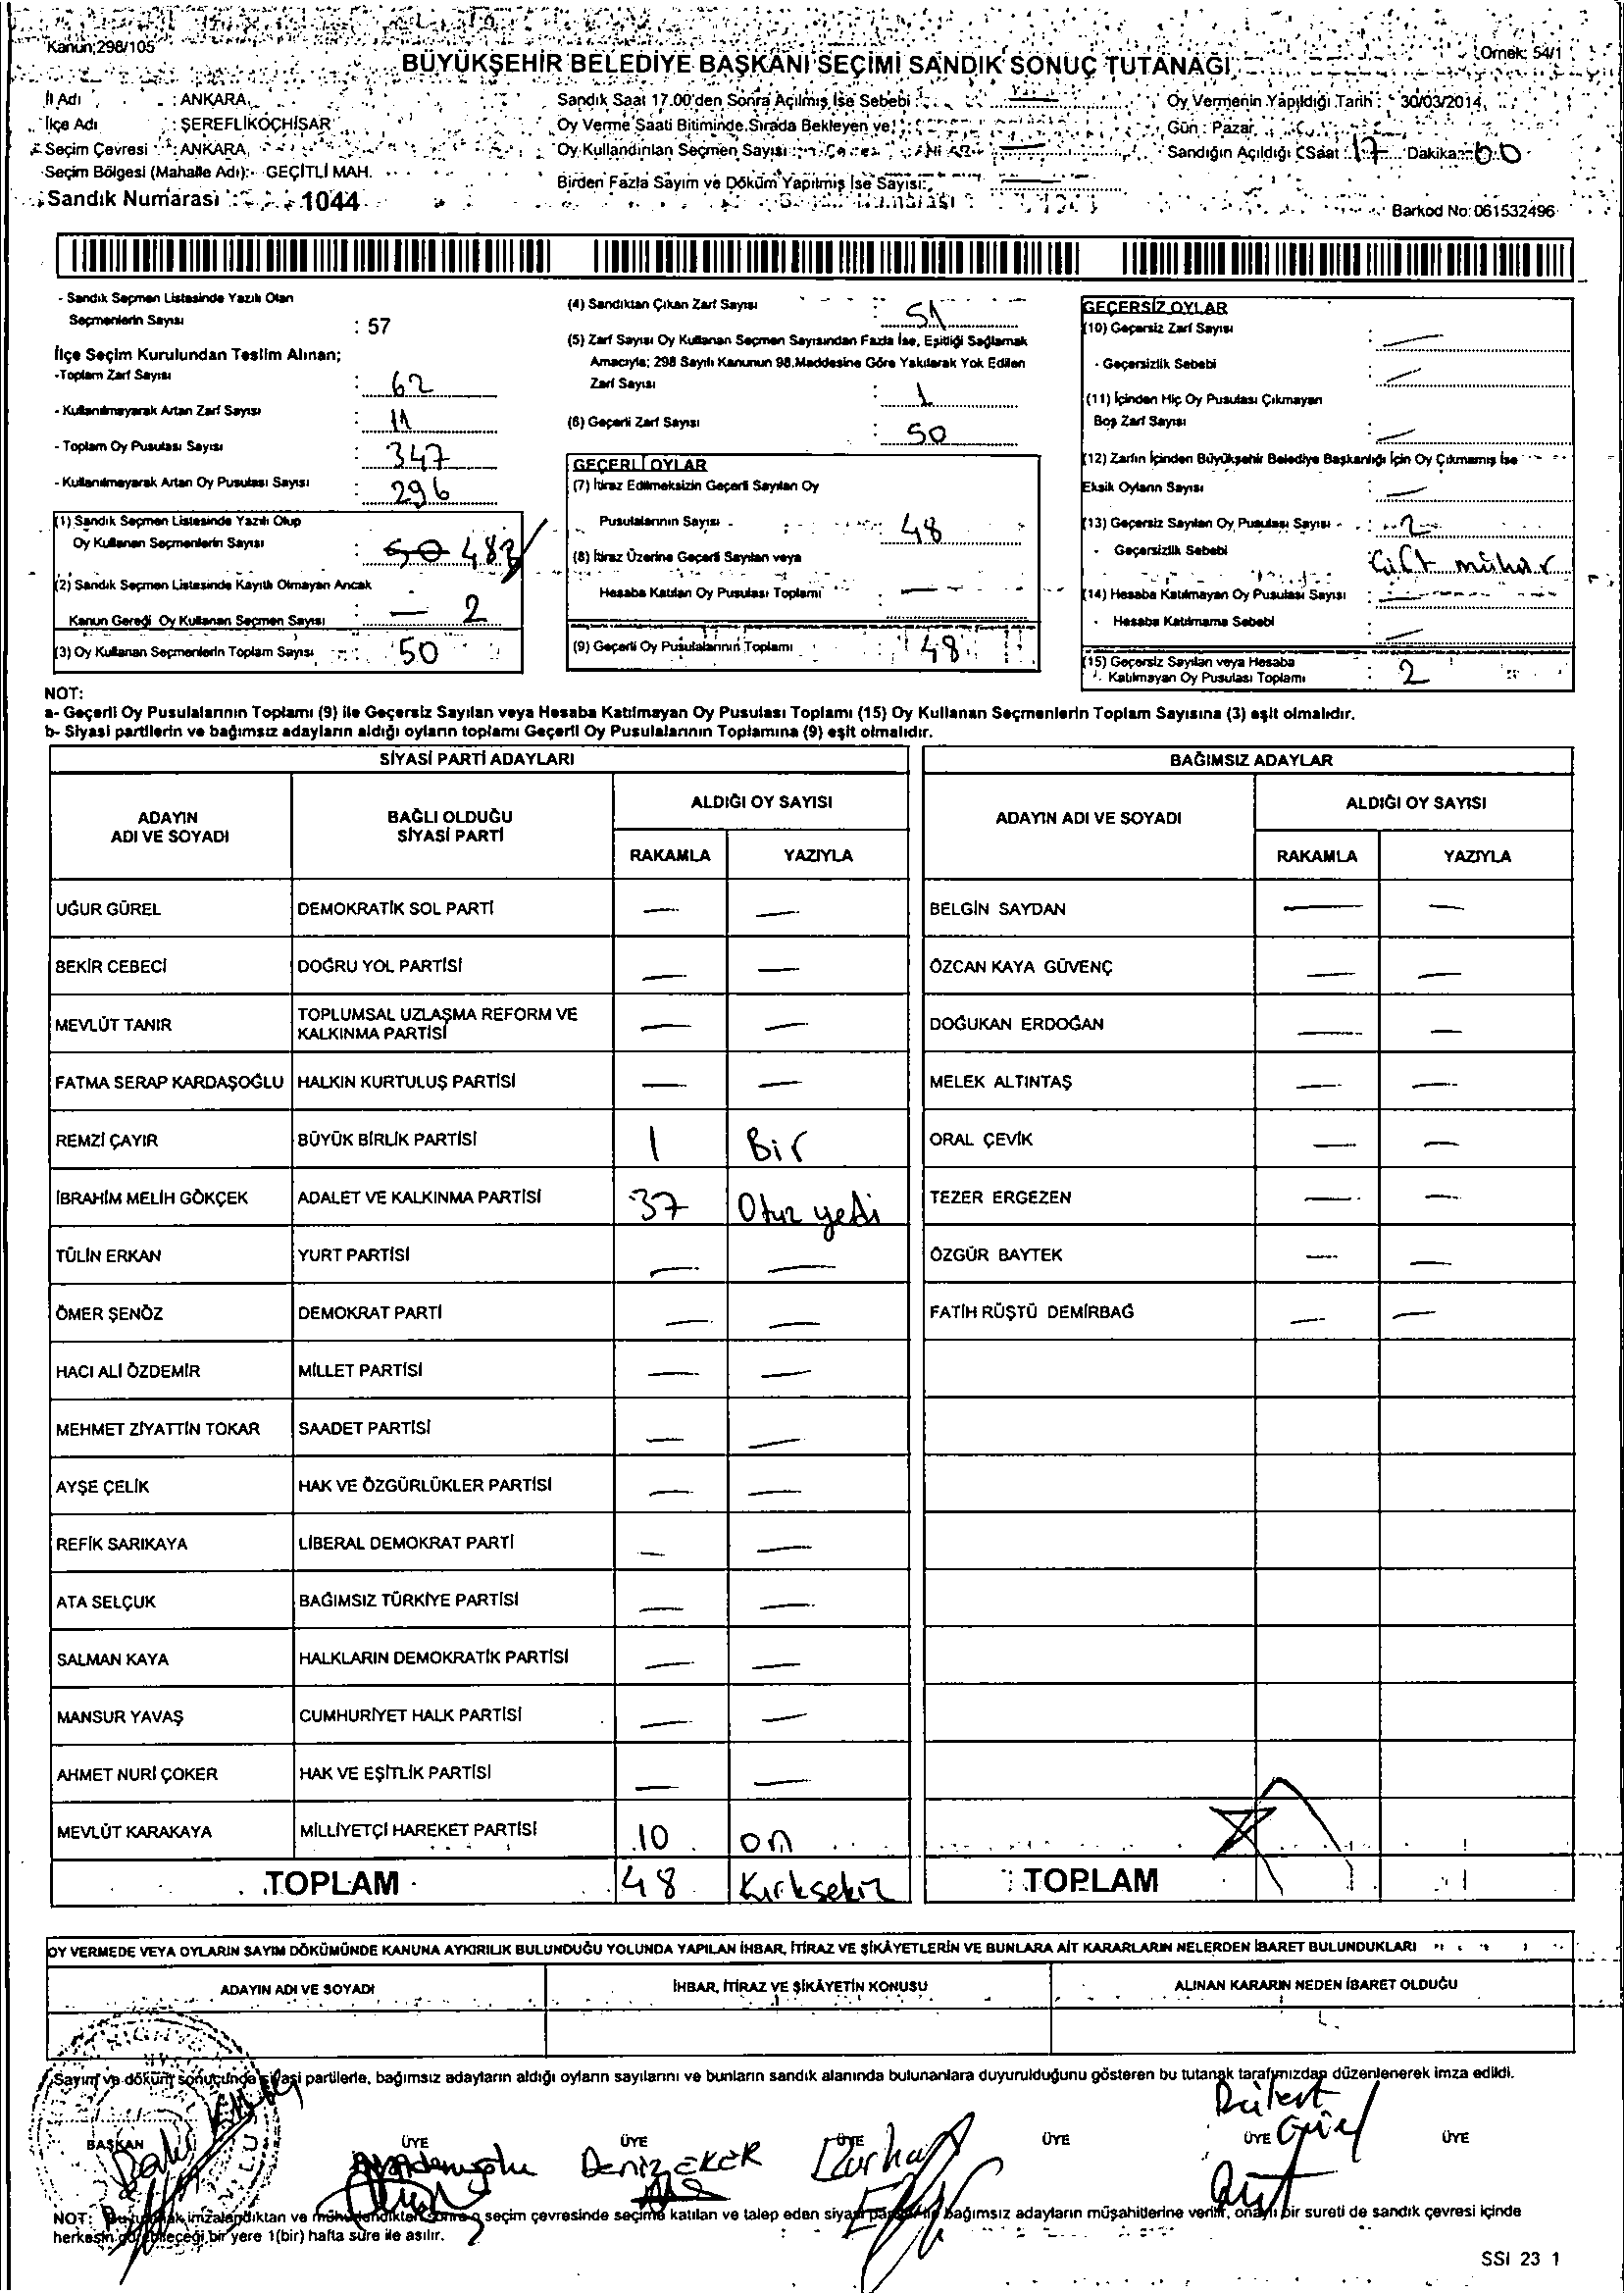 Kanun;298/105
Örnek: 54/1
BÜYÜKŞEHİR BELEDİYE BAŞKANI SEÇİMİ SANDIK SONUÇ TUTANAĞI
İl Adı : ANKARA
İlçe Adı : ŞEREFLİKOÇHİSAR
Seçim Çevresi : ANKARA
Seçim Bölgesi (Mahalle Adı): GEÇİTLİ MAH.
Sandık Numarası : 1044
Sandık Saat 17.00'den Sonra Açılmış İse Sebebi : —
Oy Verme Saati Bitiminde Sırada Bekleyen ve
Oy Kullandırılan Seçmen Sayısı : —
Birden Fazla Sayım ve Döküm Yapılmış İse Sayısı: —
Oy Vermenin Yapıldığı Tarih : 30/03/2014
Gün : Pazar
Sandığın Açıldığı (Saat : 17 Dakika: 00
Barkod No: 061532496
- Sandık Seçmen Listesinde Yazılı Olan
Seçmenlerin Sayısı : 57
İlçe Seçim Kurulundan Teslim Alınan;
-Toplam Zarf Sayısı : 62
- Kullanılmayarak Artan Zarf Sayısı : 11
- Toplam Oy Pusulası Sayısı : 347
- Kullanılmayarak Artan Oy Pusulası Sayısı : 296
(1) Sandık Seçmen Listesinde Yazılı Olup
Oy Kullanan Seçmenlerin Sayısı : 50 48
(2) Sandık Seçmen Listesinde Kayıtlı Olmayan Ancak
Kanun Gereği Oy Kullanan Seçmen Sayısı : — 2
(3) Oy Kullanan Seçmenlerin Toplam Sayısı : 50
(4) Sandıktan Çıkan Zarf Sayısı : 51
(5) Zarf Sayısı Oy Kullanan Seçmen Sayısından Fazla İse, Eşitliği Sağlamak
Amacıyla; 298 Sayılı Kanunun 98.Maddesine Göre Yakılarak Yok Edilen
Zarf Sayısı : 1
(6) Geçerli Zarf Sayısı : 50
GEÇERLİ OYLAR
(7) İtiraz Edilmeksizin Geçerli Sayılan Oy
Pusulalarının Sayısı : 48
(8) İtiraz Üzerine Geçerli Sayılan veya
Hesaba Katılan Oy Pusulası Toplamı : —
(9) Geçerli Oy Pusulalarının Toplamı : 48
GEÇERSİZ OYLAR
(10) Geçersiz Zarf Sayısı : —
- Geçersizlik Sebebi : —
(11) İçinden Hiç Oy Pusulası Çıkmayan
Boş Zarf Sayısı : —
(12) Zarfın İçinden Büyükşehir Belediye Başkanlığı İçin Oy Çıkmamış İse
Eksik Oyların Sayısı : —
(13) Geçersiz Sayılan Oy Pusulası Sayısı : 2
- Geçersizlik Sebebi : Çift mühür
(14) Hesaba Katılmayan Oy Pusulası Sayısı : —
- Hesaba Katılmama Sebebi : —
(15) Geçersiz Sayılan veya Hesaba
Katılmayan Oy Pusulası Toplamı : 2
NOT:
a- Geçerli Oy Pusulalarının Toplamı (9) ile Geçersiz Sayılan veya Hesaba Katılmayan Oy Pusulası Toplamı (15) Oy Kullanan Seçmenlerin Toplam Sayısına (3) eşit olmalıdır.
b- Siyasi partilerin ve bağımsız adayların aldığı oyların toplamı Geçerli Oy Pusulalarının Toplamına (9) eşit olmalıdır.
SİYASİ PARTİ ADAYLARI
ADAYIN ADI VE SOYADI
BAĞLI OLDUĞU SİYASİ PARTİ
ALDIĞI OY SAYISI
RAKAMLA YAZIYLA
UĞUR GÜREL DEMOKRATİK SOL PARTİ — —
BEKİR CEBECİ DOĞRU YOL PARTİSİ — —
MEVLÜT TANIR TOPLUMSAL UZLAŞMA REFORM VE KALKINMA PARTİSİ — —
FATMA SERAP KARDAŞOĞLU HALKIN KURTULUŞ PARTİSİ — —
REMZİ ÇAYIR BÜYÜK BİRLİK PARTİSİ 1 Bir
İBRAHİM MELİH GÖKÇEK ADALET VE KALKINMA PARTİSİ 37 Otuz yedi
TÜLİN ERKAN YURT PARTİSİ — —
ÖMER ŞENÖZ DEMOKRAT PARTİ — —
HACI ALİ ÖZDEMİR MİLLET PARTİSİ — —
MEHMET ZİYATTİN TOKAR SAADET PARTİSİ — —
AYŞE ÇELİK HAK VE ÖZGÜRLÜKLER PARTİSİ — —
REFİK SARIKAYA LİBERAL DEMOKRAT PARTİ — —
ATA SELÇUK BAĞIMSIZ TÜRKİYE PARTİSİ — —
SALMAN KAYA HALKLARIN DEMOKRATİK PARTİSİ — —
MANSUR YAVAŞ CUMHURİYET HALK PARTİSİ — —
AHMET NURİ ÇOKER HAK VE EŞİTLİK PARTİSİ — —
MEVLÜT KARAKAYA MİLLİYETÇİ HAREKET PARTİSİ 10 on
TOPLAM 48 Kırksekiz
BAĞIMSIZ ADAYLAR
ADAYIN ADI VE SOYADI
ALDIĞI OY SAYISI
RAKAMLA YAZIYLA
BELGİN SAYDAN — —
ÖZCAN KAYA GÜVENÇ — —
DOĞUKAN ERDOĞAN — —
MELEK ALTINTAŞ — —
ORAL ÇEVİK — —
TEZER ERGEZEN — —
ÖZGÜR BAYTEK — —
FATİH RÜŞTÜ DEMİRBAĞ — —
TOPLAM
OY VERMEDE VEYA OYLARIN SAYIM DÖKÜMÜNDE KANUNA AYKIRILIK BULUNDUĞU YOLUNDA YAPILAN İHBAR, İTİRAZ VE ŞİKÂYETLERİN VE BUNLARA AİT KARARLARIN NELERDEN İBARET BULUNDUKLARI
ADAYIN ADI VE SOYADI
İHBAR, İTİRAZ VE ŞİKÂYETİN KONUSU
ALINAN KARARIN NEDEN İBARET OLDUĞU
Sayım ve döküm sonucunda siyasi partilerle, bağımsız adayların aldığı oyların sayılarını ve bunların sandık alanında bulunanlara duyurulduğunu gösteren bu tutanak tarafımızdan düzenlenerek imza edildi.
BAŞKAN ÜYE ÜYE ÜYE ÜYE ÜYE ÜYE
Deniz EKER
NOT: Bu tutanak imzalandıktan ve mühürlendikten sonra seçim çevresinde seçime katılan ve talep eden siyasi parti ile bağımsız adayların müşahitlerine verilir, onaylı bir sureti de sandık çevresi içinde
herkesin görebileceği bir yere 1(bir) hafta süre ile asılır.
SSI 23 1